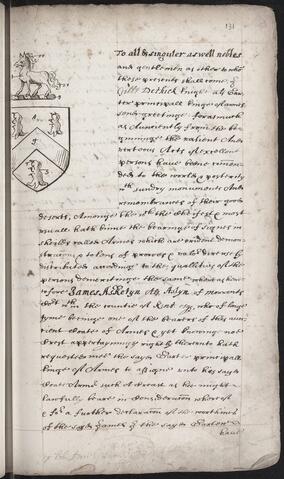 131
To all & singuler aswell nobles
and gentlemen as others to whom
these presents shall come
Gilb Dethick knight als Gar
ter principall kinge of armes
send greetinge forasmuch
as Aunciently from the be
ginninge the valiant And
vertuous Acts of excellent
persons have beene commen
ded to the world & posterity
with sundry monuments And
remembrances of their good
deserts, Amongst the which the chiefest & most
usuall hath bine the bearinge of signes in
sheilds called Armes which are evident demon
stracions & tokens of prowes & valor diversly
distributed accordinge to the quallities of the
persons demeritinge the same
fore James
in the countie of Kent who of longe
tyme beinge one of the bearers of this aun
cient Coate of Armes & yet knowing noe
Crest appertayninge rightly thereunto hath
requested mee the sayd Garter principall
kinge of Armes to assigne unto his sayd
Coate Armor such a Creast as hee might
lawfully beare in consideration whereof
& for a further declaration of the worthines
of the sayd James I the sayd Garter
have